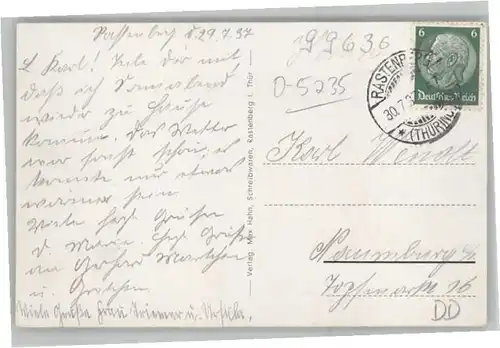 Rastenberg d. 29.7.37
L. Karl! Teile dir mit
daß ich Sonnabend
wieder zu Hause
komme. Das Wetter
war sonst schön, es
konnte nur etwas
wärmer sein.
Viele herzl. Grüße
d. Marie. Herzl. Grüße
an Gerhard
u. Gretchen
Viele Grüße Frau Triemer u. Ursula.
Verlag: Max Hahn, Schreibwaren, Rastenberg i. Thür.
99636
D-5235
6 6
Deutsches Reich
RASTENBERG
30.7.37
(THÜRING)
Karl Wendt
Naumburg a/S
Topfmarkt 16
DD